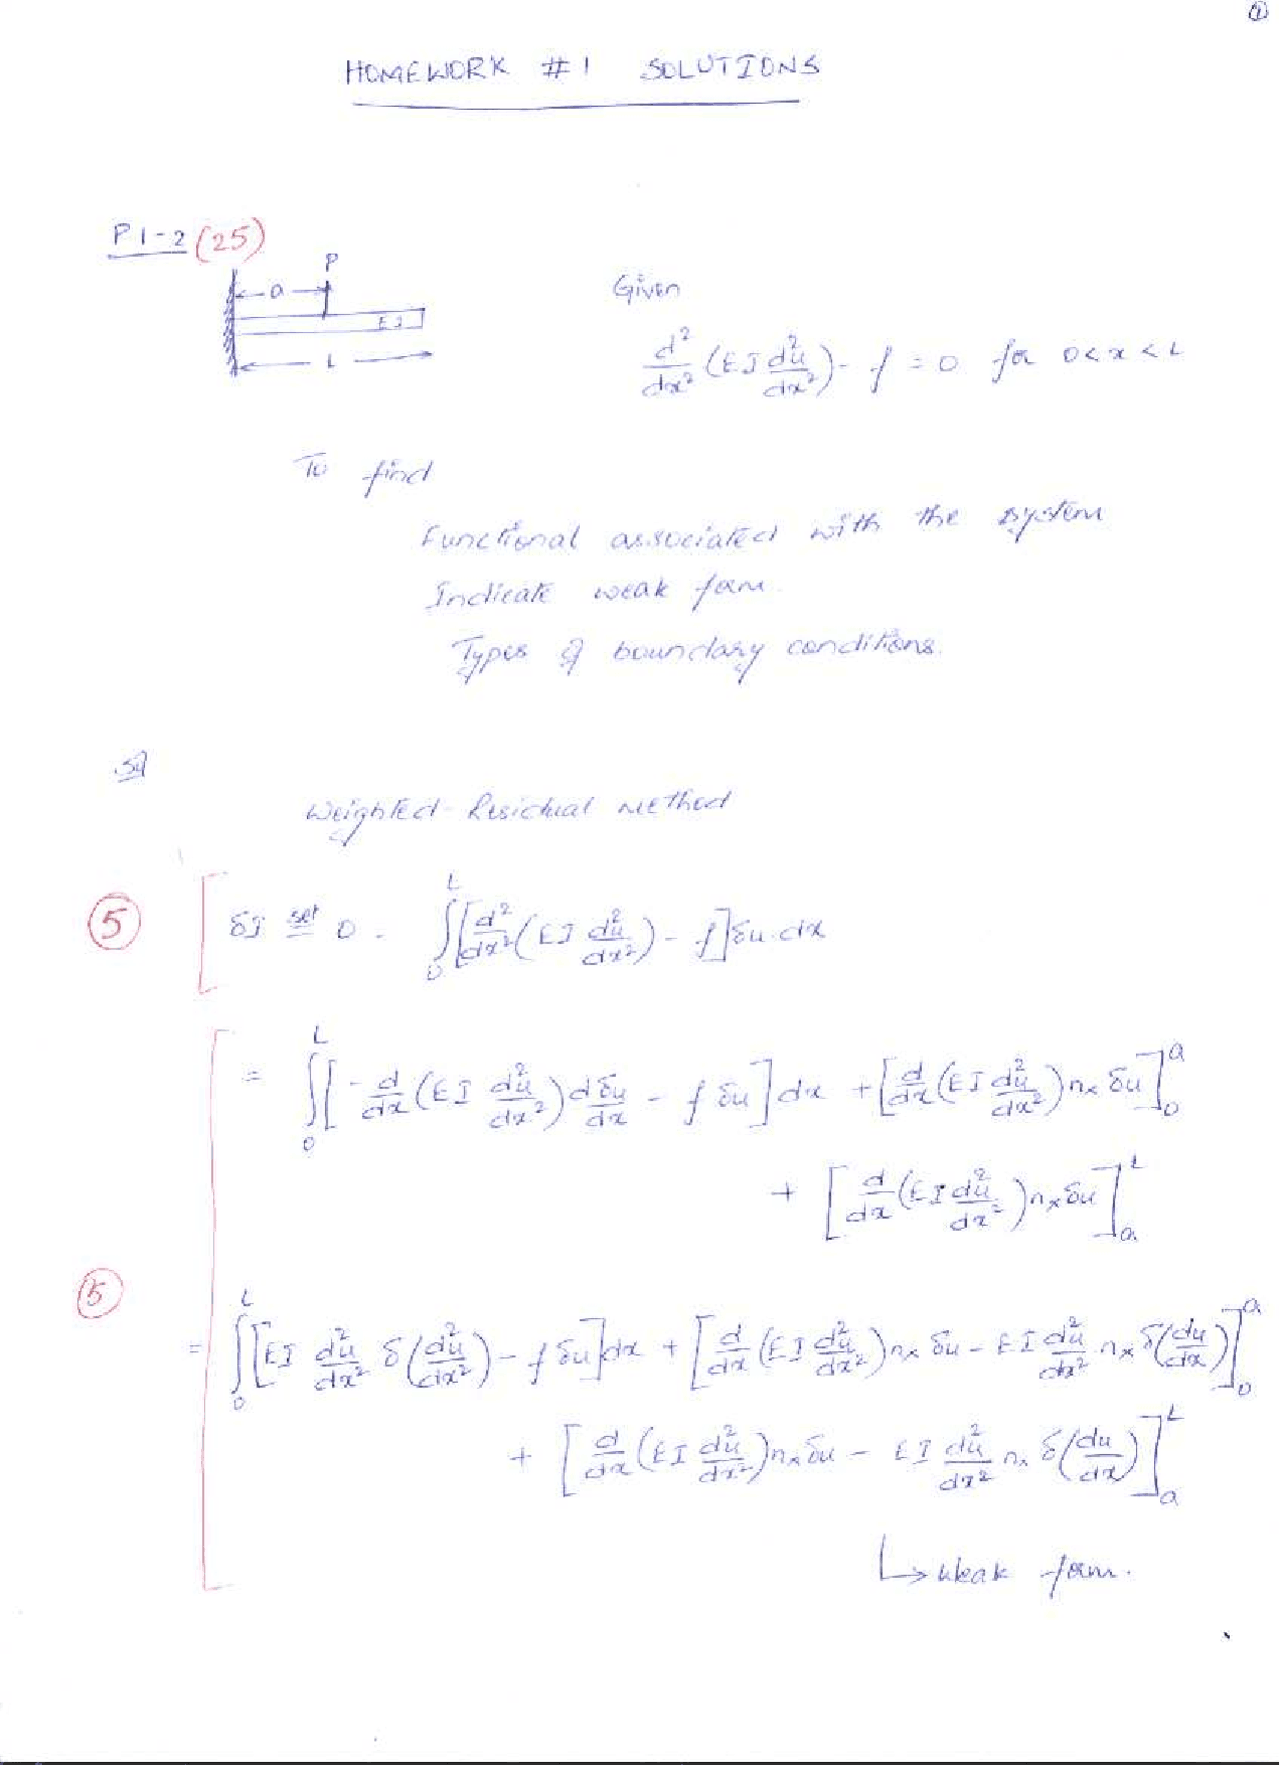 ①
HOMEWORK #1 SOLUTIONS
P1-2 (25)
P
a
EI
L
Given
d²/dx² (EI d²u/dx²) - f = 0 for 0<x<L
To find
Functional associated with the system
Indicate weak form.
Types of boundary conditions.
Sol
Weighted-Residual method
⑤ δI set= 0 = ∫₀ᴸ [d²/dx² (EI d²u/dx²) - f] δu·dx
= ∫₀ᴸ [-d/dx (EI d²u/dx²) dδu/dx - f δu] dx + [d/dx (EI d²u/dx²) nₓ δu]₀ᵃ
+ [d/dx (EI d²u/dx²) nₓ δu]ₐᴸ
⑤
= ∫₀ᴸ [EI d²u/dx² δ(d²u/dx²) - f δu] dx + [d/dx (EI d²u/dx²) nₓ δu - EI d²u/dx² nₓ δ(du/dx)]₀ᵃ
+ [d/dx (EI d²u/dx²) nₓ δu - EI d²u/dx² nₓ δ(du/dx)]ₐᴸ
↳ weak form.